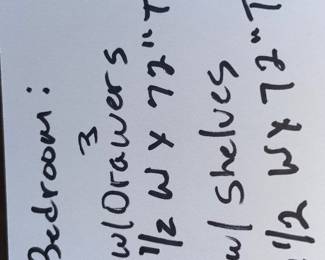 Bedroom:
3
w/Drawers
1/2 W x 72" T
w/ Shelves
1/2 W x 72" T